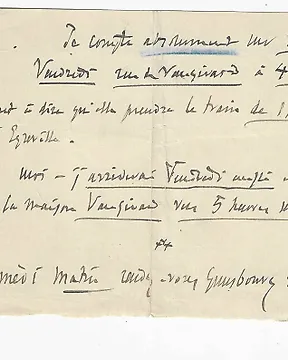 . Je compte absolument sur
Vendredi rue de Vaugirard à 4
à dire qu'elle prendra le train de 1
Moi – j'arriverai Vendredi
la maison Vaugirard vers 5 heures
medi matin rendez-vous Gunsbourg